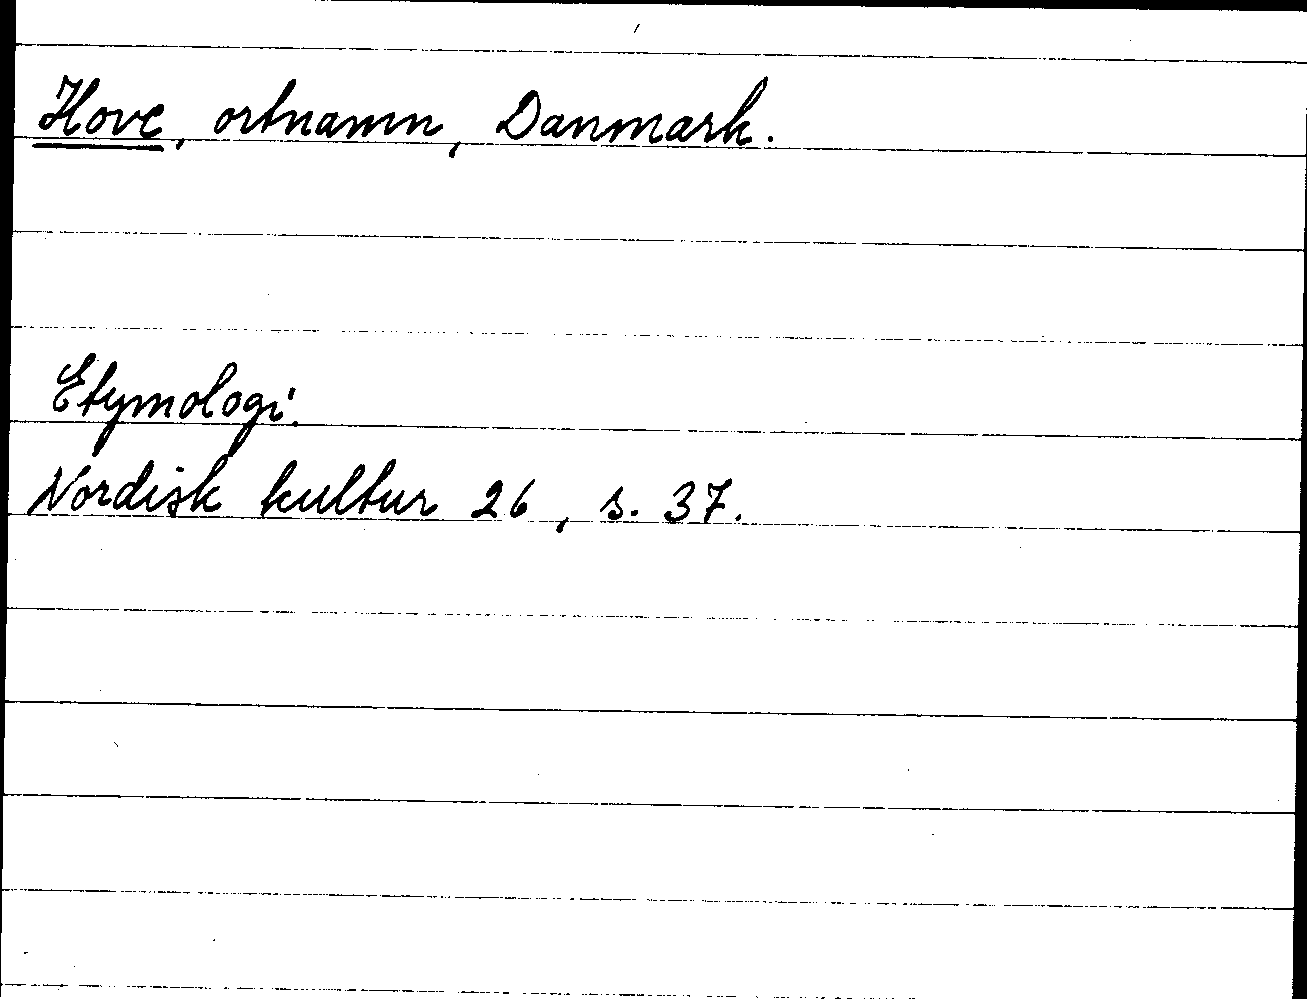 Hove, ortnamn, Danmark.
Etymologi.
Nordisk kultur 26, s. 37.